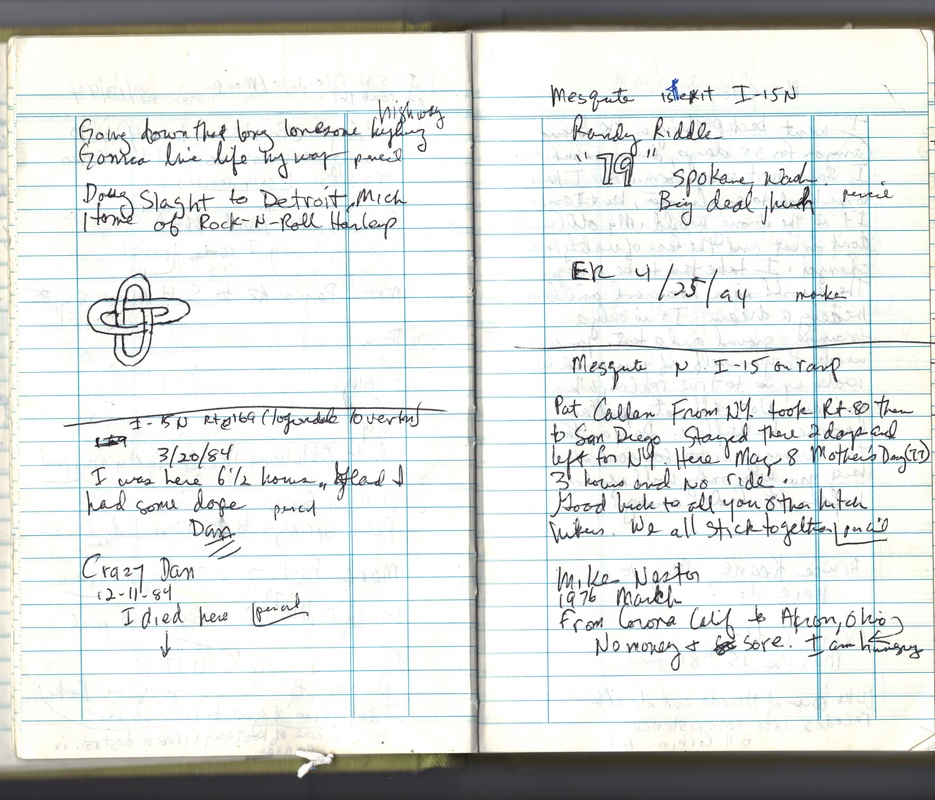 highway
Going down that long lonesome
Gonna live life my way pencil
Doug Slaght to Detroit, Mich
Home of Rock-N-Roll Harley
I-15 N Rt 169 (Logandale Overton)
3/20/84
I was here 6 1/2 hours, glad I
had some dope pencil
Dan
Crazy Dan
12-11-84
I died here pencil
Mesquite 1st exit I-15N
Randy Riddle
"79"
Spokane, Wash.
Big deal, huh pencil
ER 4/25/94 marker
Mesquite N I-15 on ramp
Pat Callan From NY. took Rt. 80 then
to San Diego Stayed there 2 days and
left for NY. Here May 8 Mother's Day (77)
3 hours and no ride.
Good luck to all you other hitch
hikers. We all stick together pencil
Mike Nestor
1976 March
From Corona Calif to Akron, Ohio
No money & sore. I am hungry